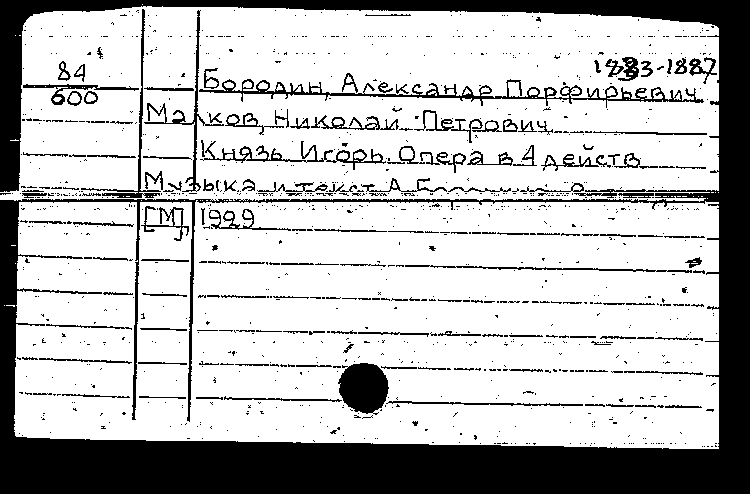 1833-1887
84
600
Бородин, Александр Порфирьевич
Малков, Николай Петрович
Князь Игорь. Опера в 4 действ
Музыка и текст А.
[М], 1929